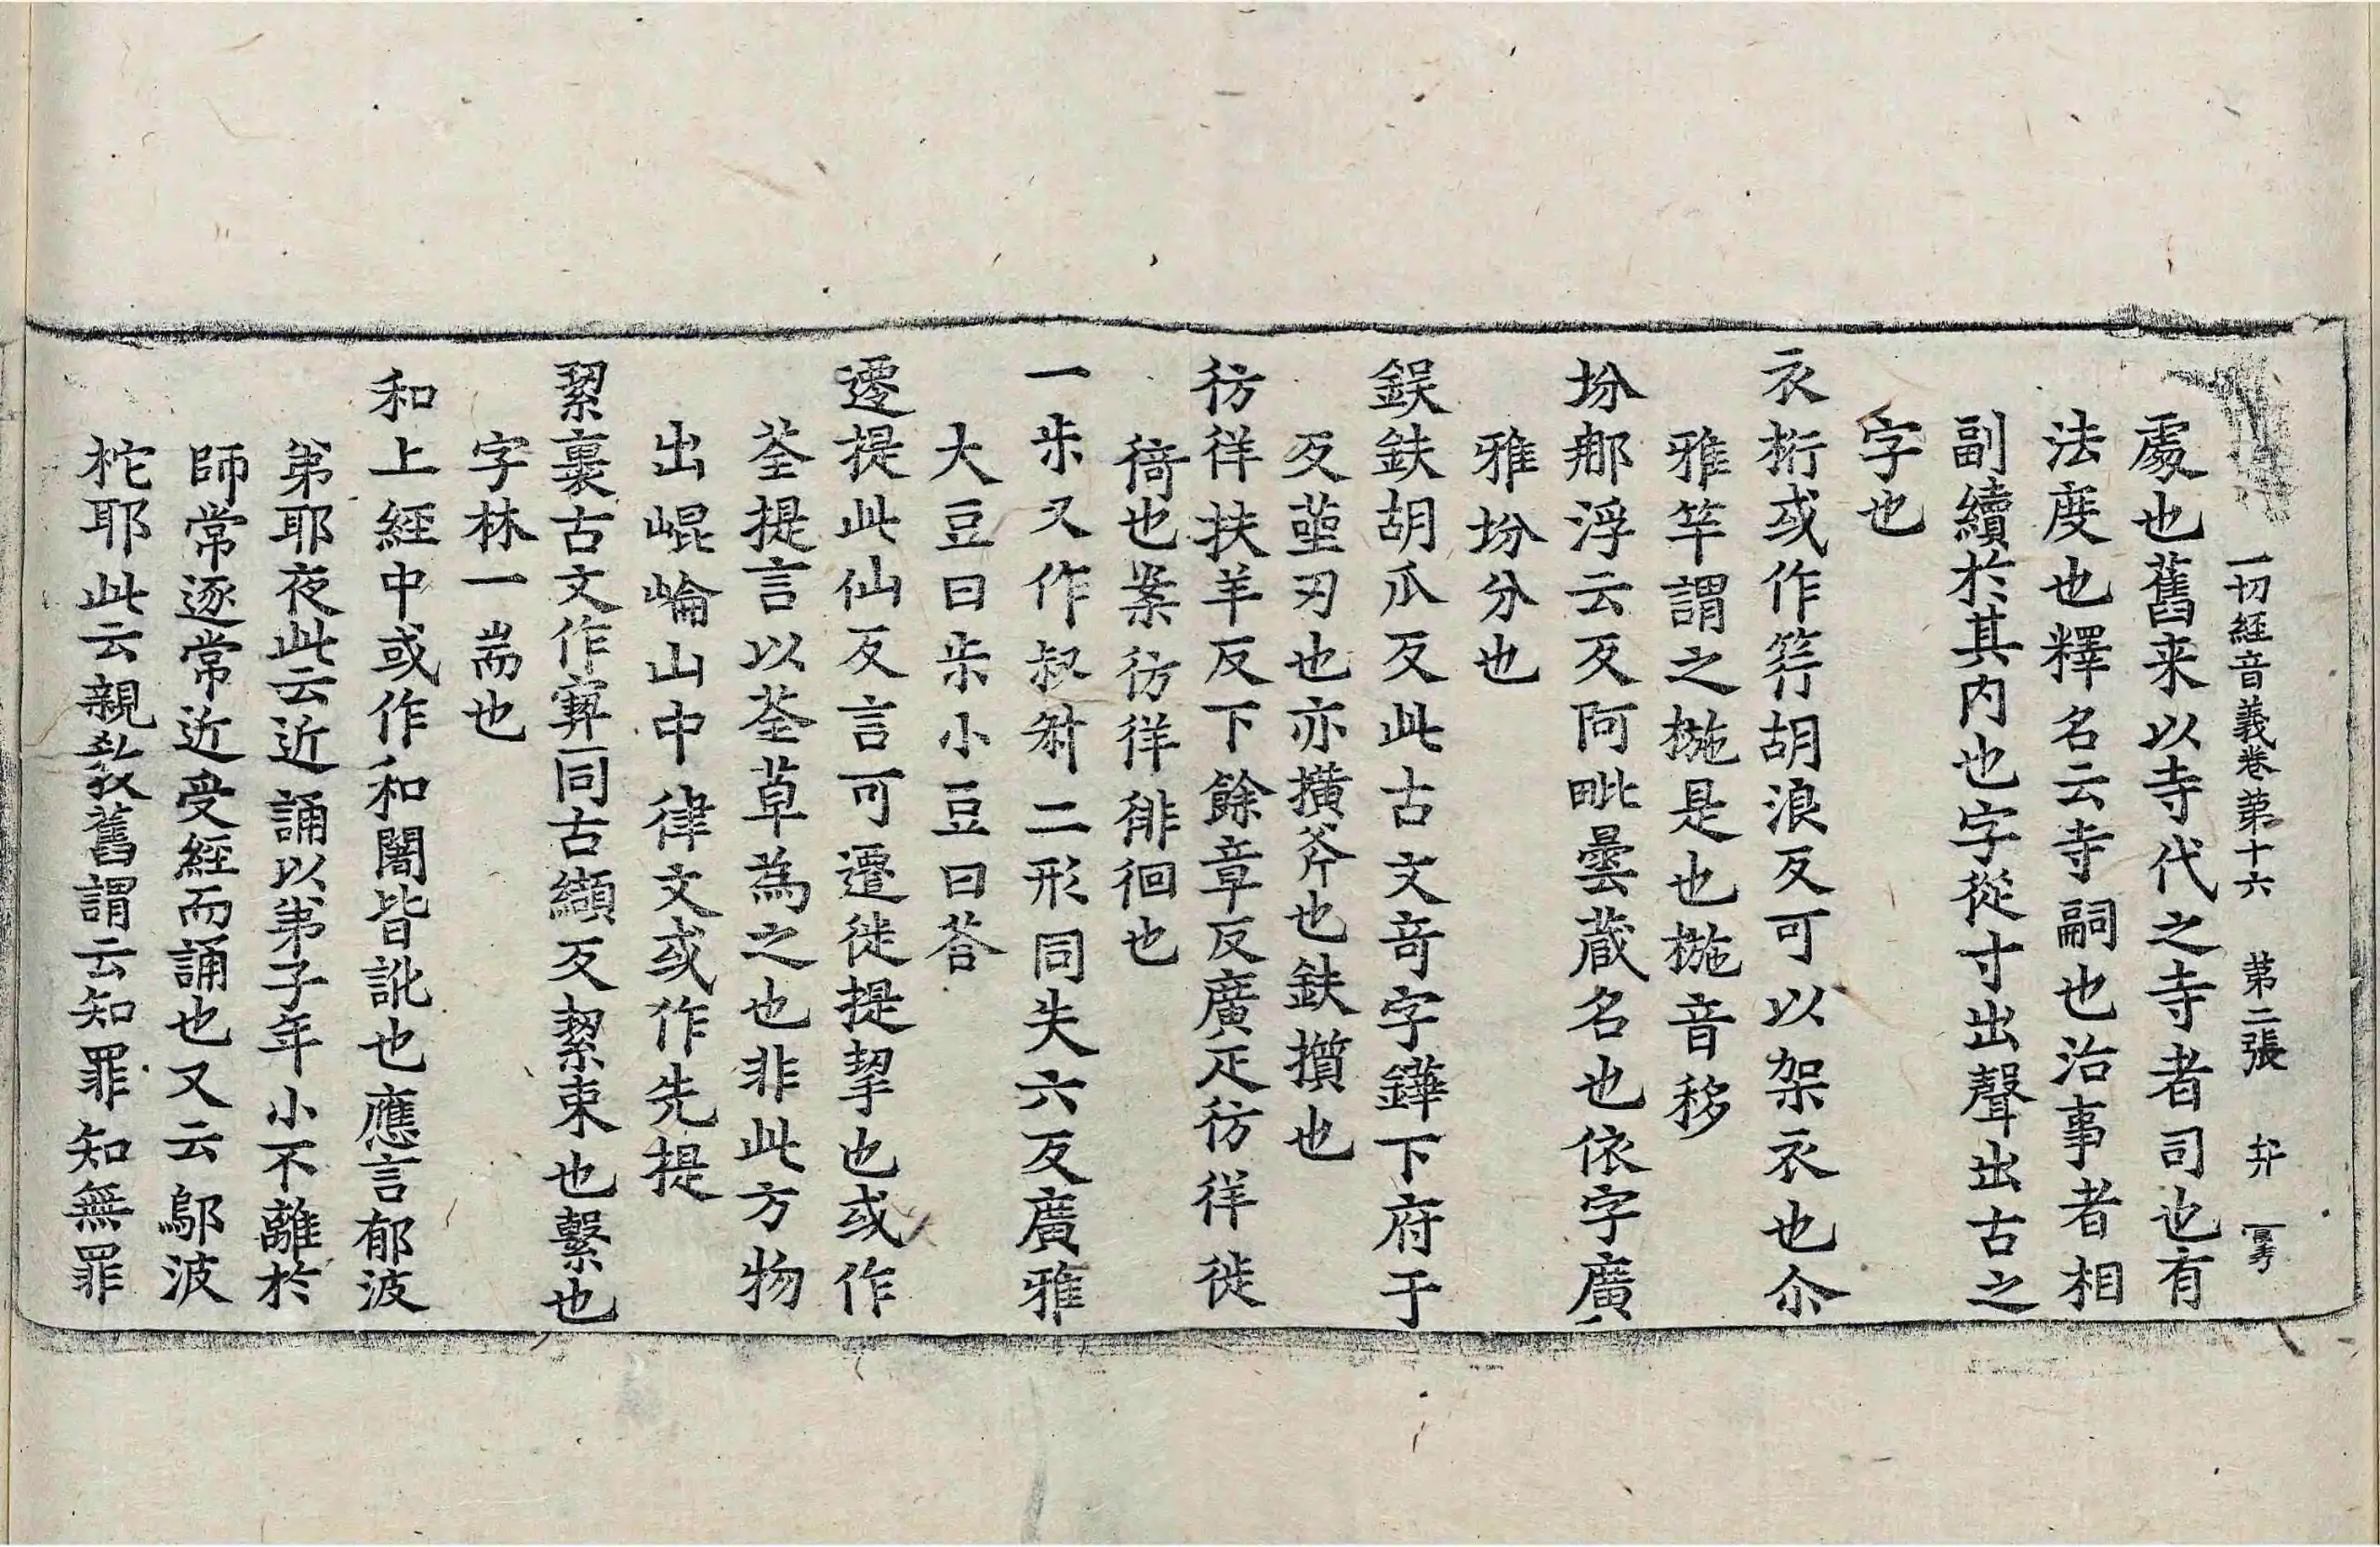 一切經音義卷第十六 第二張 弁
處也舊来以寺代之寺者司也有
法度也釋名云寺嗣也治事者相
副續於其内也字從寸出聲出古之
字也
衣桁或作笐胡浪反可以架衣也尒
雅竿謂之椸是也椸音移
坋那浮云反阿毗曇蔵名也依字廣
雅坋分也
鋘鈇胡瓜反此古文竒字鏵下府于
反莝刃也亦撗斧也鈇㩯也
彷徉扶羊反下餘章反廣疋彷徉徙
倚也案彷徉徘徊也
一尗又作叔𣁋二形同失六反廣雅
大豆曰尗小豆曰荅
遷提此仙反言可遷徙提挈也或作
荃提言以荃草為之也非此方物
出崐崘山中律文或作先提
絜裹古文作𡪢同古纈反絜束也繫也
字林一耑也
和上經中或作和闍皆訛也應言郁波
弟耶夜此云近誦以弟子年小不離於
師常逐常近受經而誦也又云鄔波
柁耶此云親教舊謂云知罪知無罪